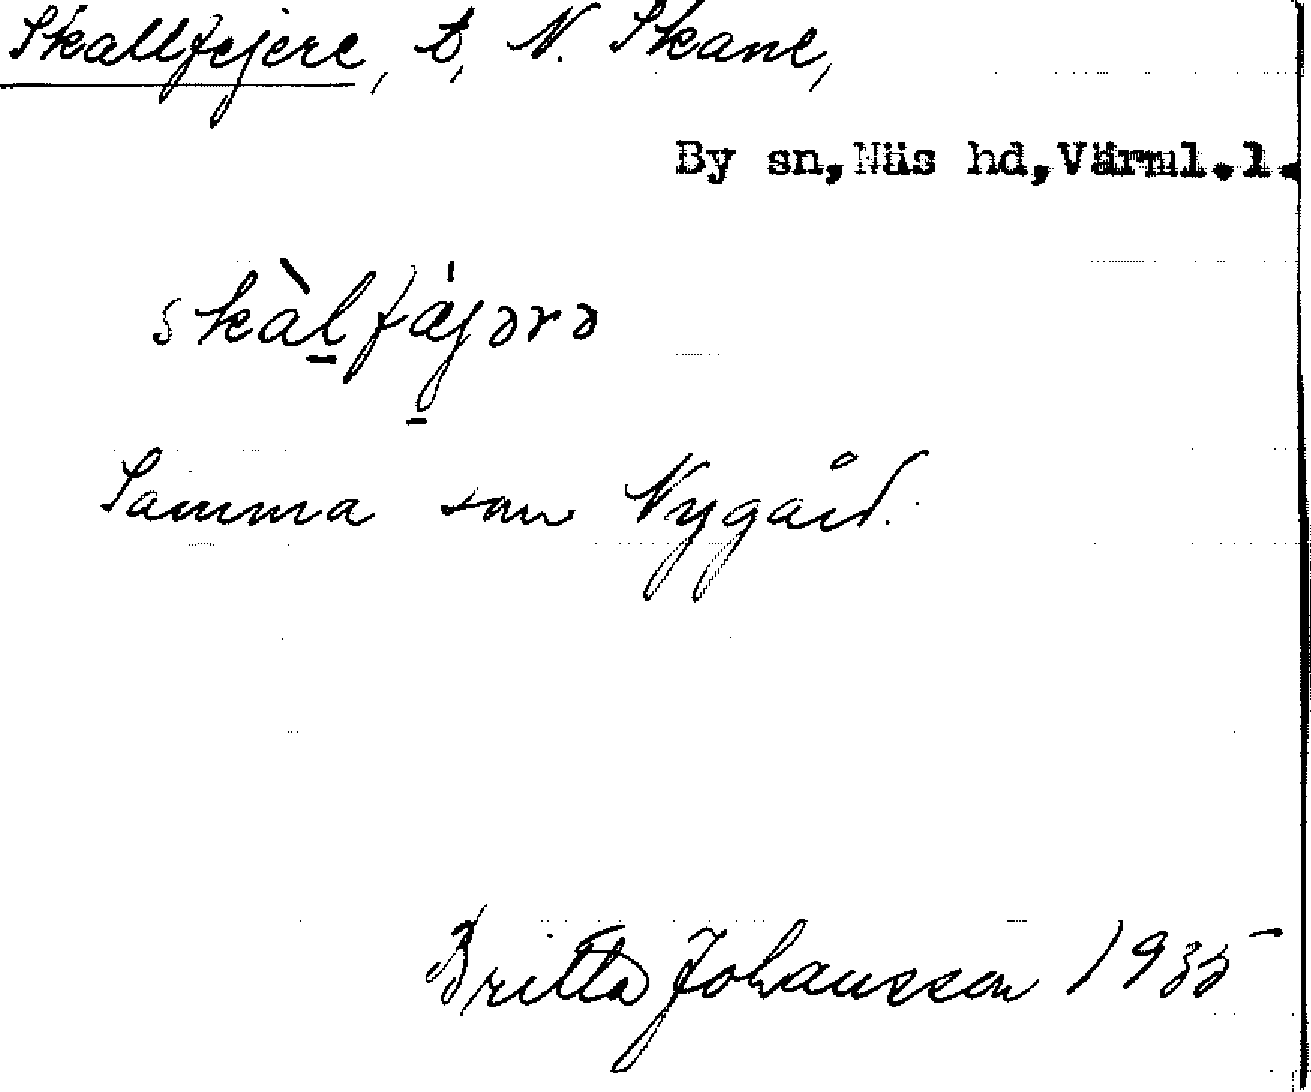 Skallfejere, t, N. Skane,
By sn, Näs hd, Värml.l.
skàlfæ̀jərə
Samma som Nygård.
Britta Johansson 1935